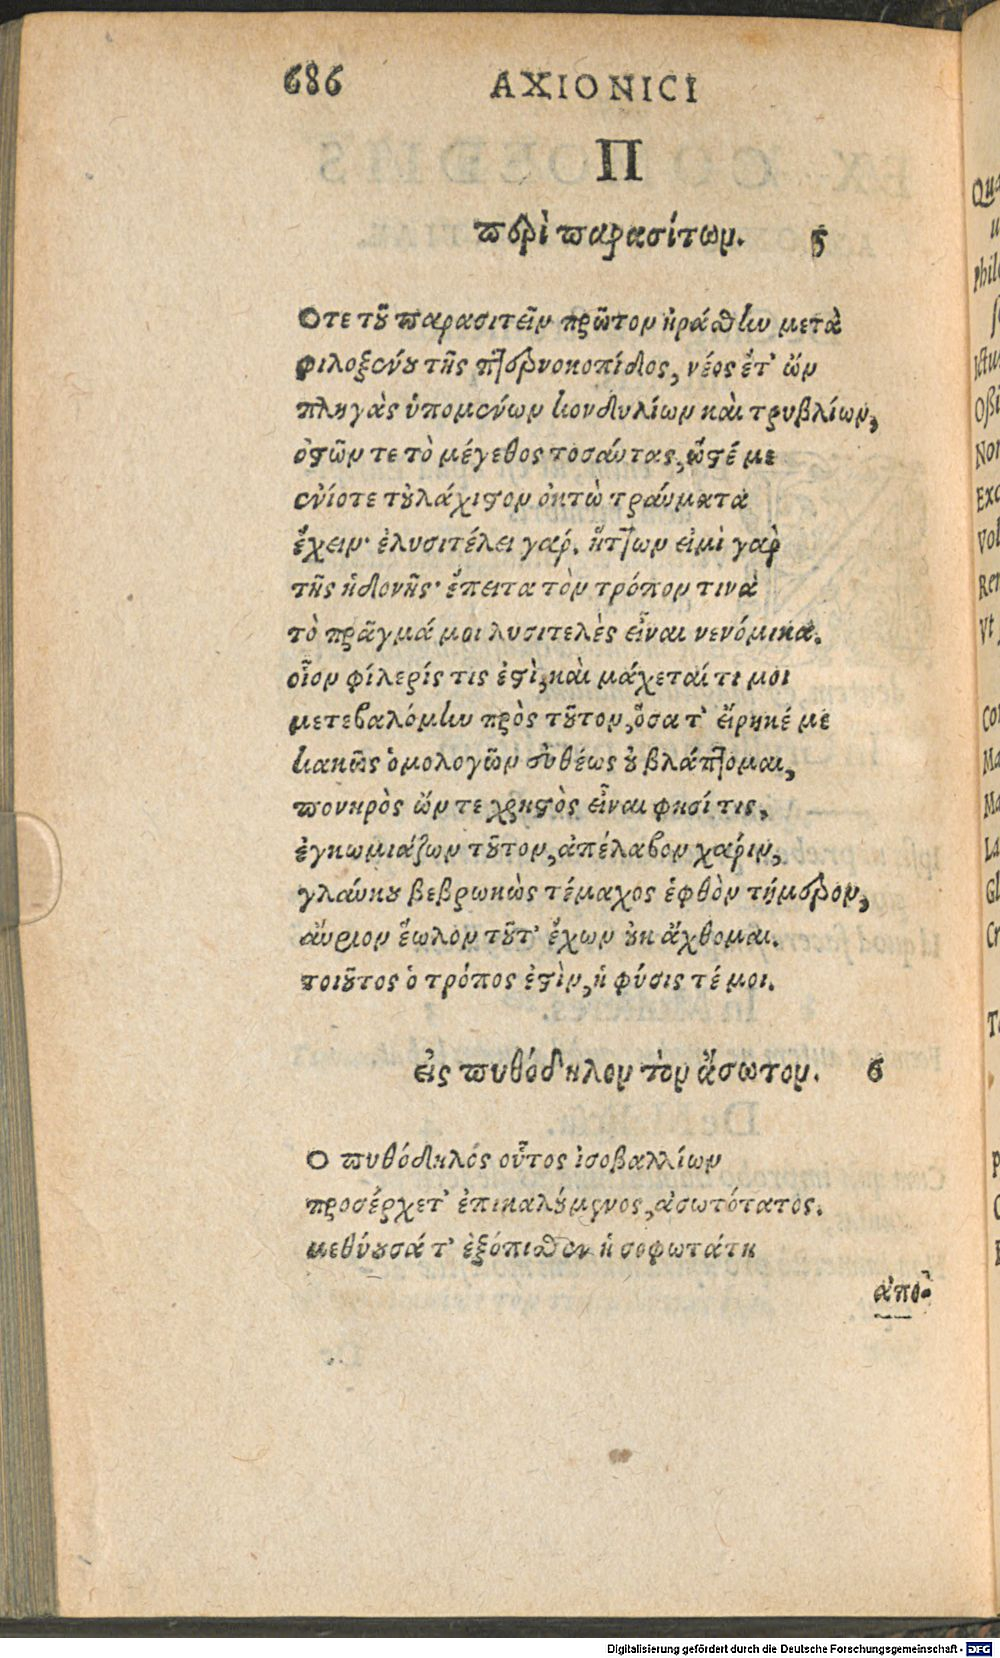 686 AXIONICI
Π
περὶ παρασίτων. 5
Οτε τοῦ παρασιτεῖν πρῶτον ἠράσθην μετὰ
φιλοξένου τῆς πτερνοκοπίδος, νέος ἔτ' ὢν
πληγὰς ὑπομένων κονδυλίων καὶ τρυβλίων,
ὀστῶν τε τὸ μέγεθος τοσαύτας, ὥστέ με
ἐνίοτε τοὐλάχιστον ὀκτὼ τραύματα
ἔχειν· ἐλυσιτέλει γάρ. ἥττων εἰμὶ γὰρ
τῆς ἡδονῆς· ἔπειτα τὸν τρόπον τινὰ
τὸ πρᾶγμά μοι λυσιτελὲς εἶναι νενόμικα.
οἷον φίλερίς τις ἐστὶ, καὶ μάχεταί τι μοι
μετεβαλόμην πρὸς τοῦτον, ὅσα τ' εἴρηκέ με
κακῶς ὁμολογῶν εὐθέως οὐ βλάπτομαι,
πονηρὸς ὤν τε χρηστὸς εἶναι φησί τις,
ἐγκωμιάζων τοῦτον, ἀπέλαβον χάριν,
γλαύκου βεβρωκὼς τέμαχος ἑφθὸν τήμερον,
αὔριον ἕωλον τοῦτ' ἔχων οὐκ ἄχθομαι.
τοιοῦτος ὁ τρόπος ἐστὶν, ἡ φύσις τέ μοι.
εἰς πυθόδηλον τὸν ἄσωτον. 6
Ο πυθόδηλός οὗτος ἰσοβαλλίων
προσέρχετ' ἐπικαλούμενος, ἀσωτότατος.
μεθύουσά τ' ἐξόπισθεν ἡ σοφωτάτη
ἀπο-
Digitalisierung gefördert durch die Deutsche Forschungsgemeinschaft - DFG